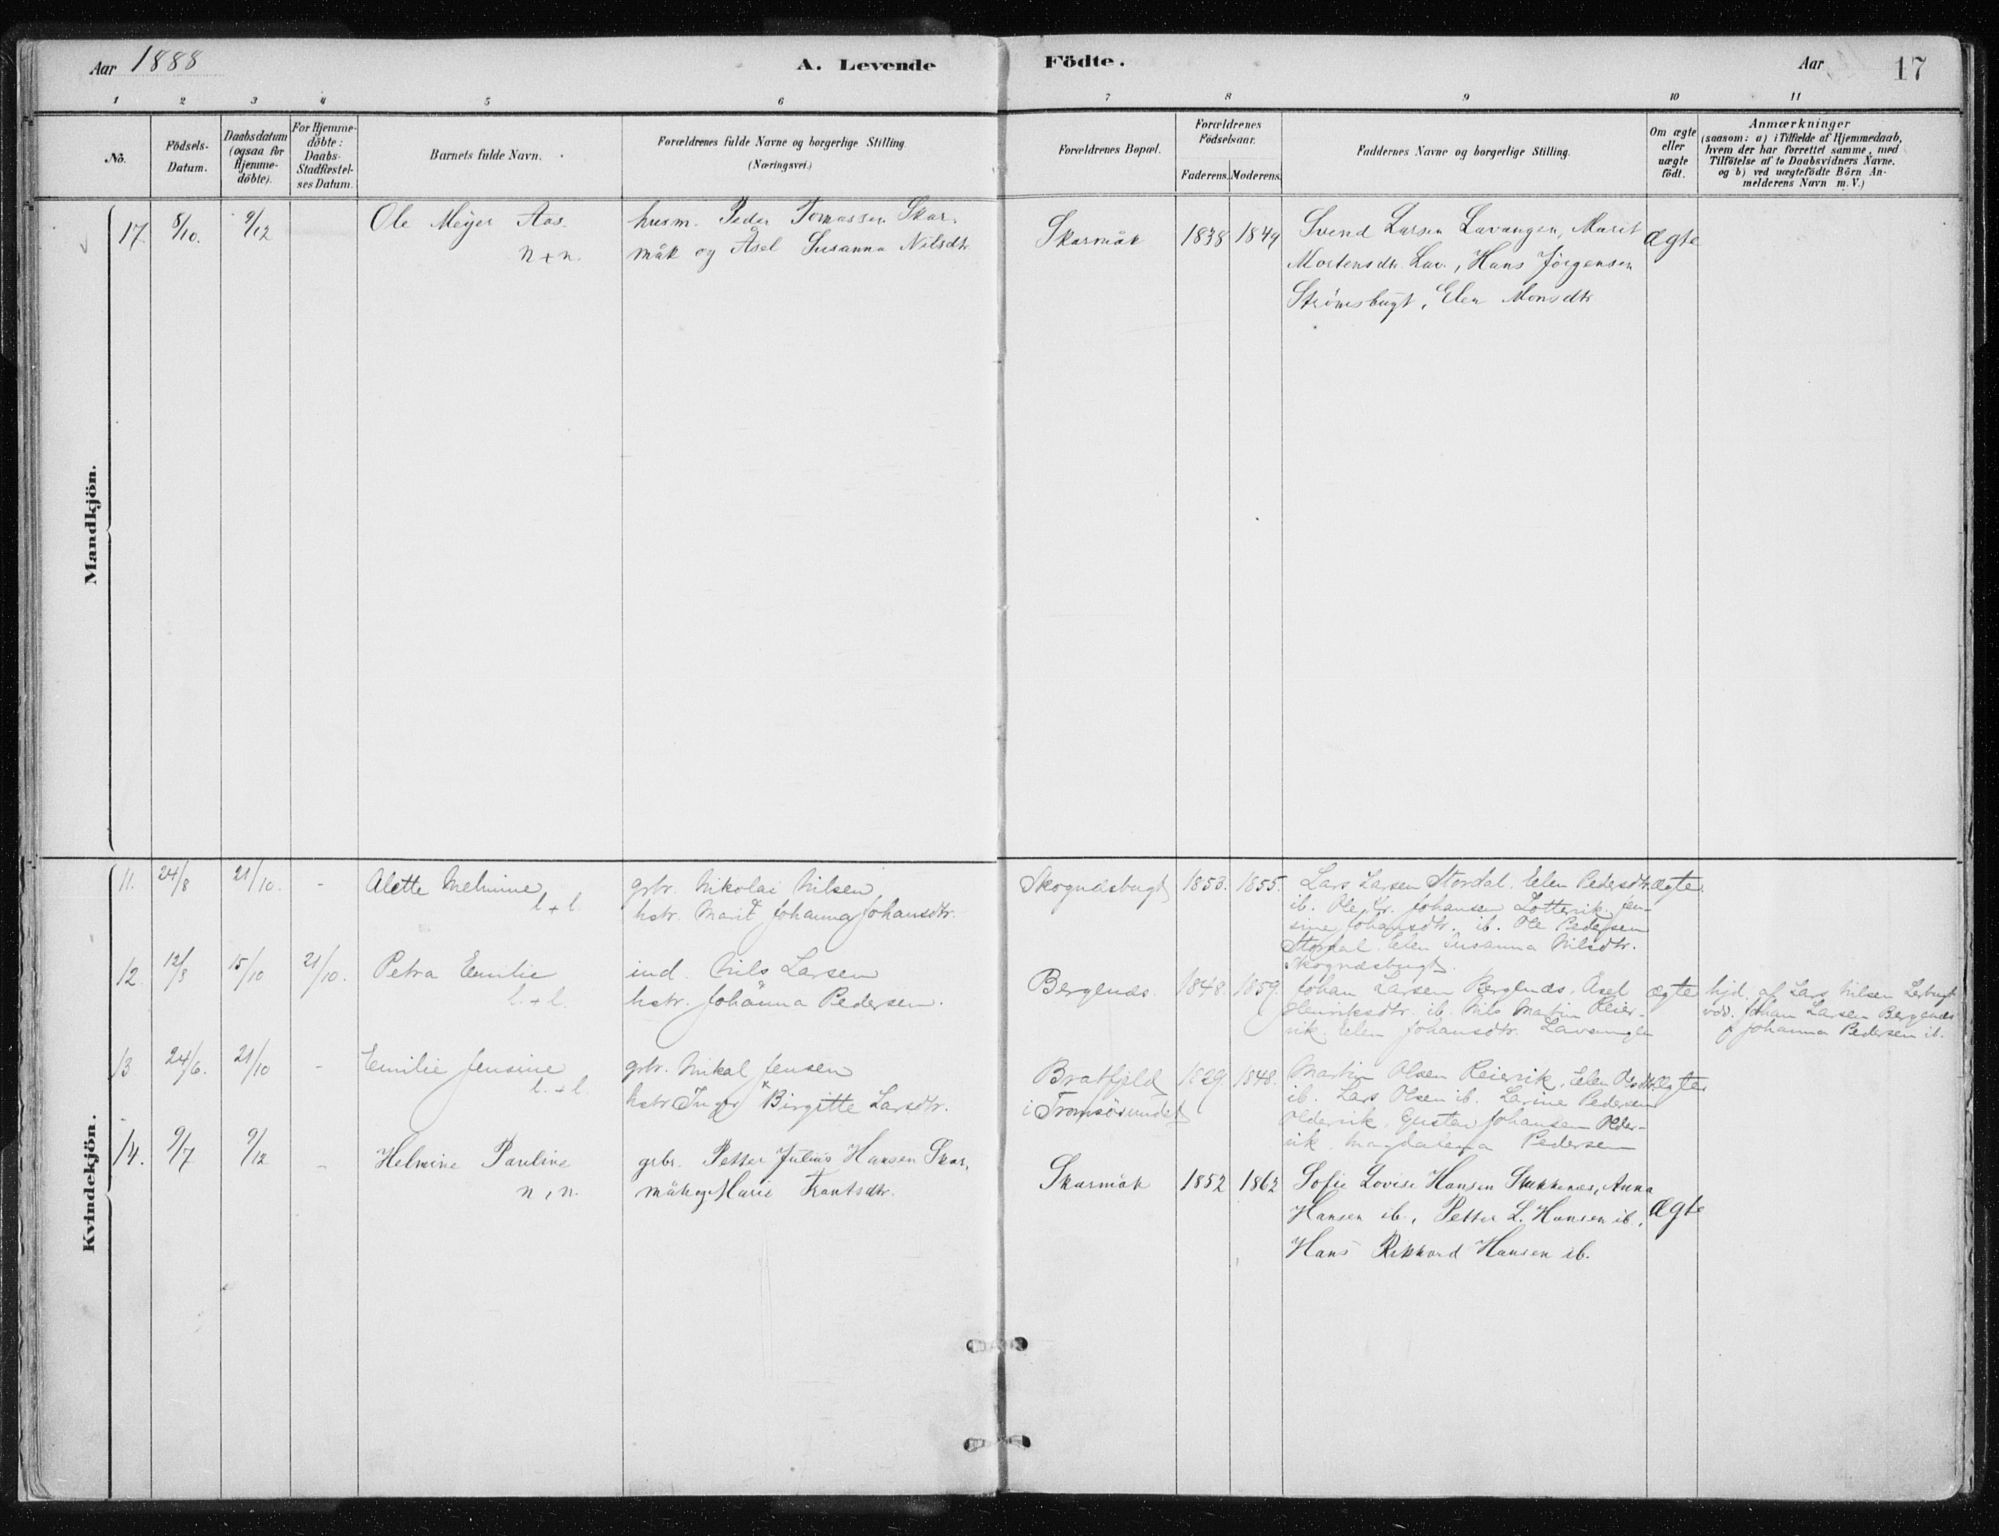 Aar 1888
A. Levende
Födte.
Aar
17
1 2 3 4 5 6 7 8 9 10 11
No.
Födsels-
Datum.
Daabsdatum
(ogsaa for
Hjemme-
döbte).
For Hjemme-
döbte:
Daabs-
Stadfæstel-
ses Datum.
Barnets fulde Navn.
Forældrenes fulde Navne og borgerlige Stilling
(Næringsvei.)
Forældrenes Bopæl.
Forældrenes
Födselsaar.
Faderens.
Moderens.
Faddernes Navne og borgerlige Stilling.
Om ægte
eller
uægte
födt.
Anmærkninger
(saasom: a) i Tilfælde af Hjemmedaab,
hvem der har forrettet samme, med
Tilföielse af to Daabsvidners Navne.
og b) ved uægtefödte Börn An-
melderens Navn m. V.)
Mandkjön.
17. 8/10. 9/12
Ole Meyer Aas.
n + n.
husm. Peder Tomassen Skar-
måk og Åsel Susanna Nilsdtr
Skarmåk
1838
1849
Svend Larsen Lavangen, Marit
Mortensdtr. Lav., Hans Jørgensen
Strømsbugt, Elen Monsdtr
Ægte
Kvindekjön.
11. 24/8 21/10. -
Alette Melmine
l + l.
grbr. Nikolai Nilsen
hstr. Marit Johanna Johansdtr.
Skognæsbugt
1853.
1855.
Lars Larsen Stordal. Elen Pedersdtr.
ib. Ole Kr. Johansen Lotterik. Jen-
sine Johansdtr. ib. Ole Pedersen
Stordal. Elen Susanna Nilsdtr.
Skognæsbugt.
ægte
12. 12/8 15/10 21/10.
Petra Emilie
l. + l.
ind. Nils Larsen
hstr. Johanna Pedersen.
Bergenæs.
1848
1859.
Johan Larsen Bergenæs. Asel
Henriksdtr. ib. Nils Martin Reier-
vik. Elen Johansdtr. Lavangen
ægte
hjd. af Lars Nilsen
vid. Johan Larsen Bergenæs
Johanna Pedersen ib.
13. 24/6. 21/10 -
Emilie Jensine
l. + l.
grbr. Mikal Jensen
hstr. Inger Birgitte Larsdtr.
Bratfjeld
i Tromsösundet
1829.
1848.
Martin Olsen Reiervik, Elen Olsdtr.
ib. Lars Olsen ib. Larine Pedersen
Oldervik, Gustav Johansen Older-
vik Magdalena Pedersen
Ægte
14. 9/7 9/12 -
Helmine Pauline
n + n.
grbr. Petter Julius Hansen Skar,
måk og Marie Frantsdtr.
Skarmåk
1852
1862
Sofie Lovise Hansen Stakkenæs, Anna
Hansen ib., Petter L. Hansen ib.,
Hans Rikkard Hansen ib.
Ægte